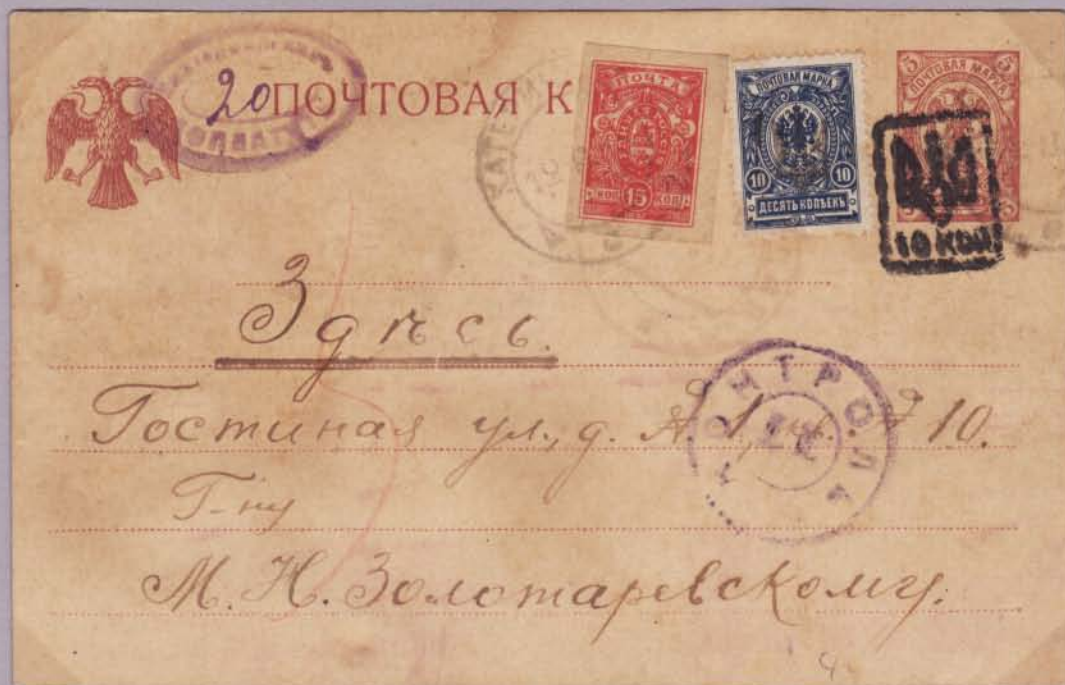 20
ПОЧТОВАЯ К
ПОЧТА
КОП 15 КОП
ПОЧТОВАЯ МАРКА
10 10
ДЕСЯТЬ КОПѢЕКЪ
5 5
ПОЧТОВАЯ МАРКА
10 КОП
Здѣсь.
Гостиная ул., д. № 1, кв. № 10.
Г-ну
М. Н. Золотаревскому.
КОНТРОЛЯ